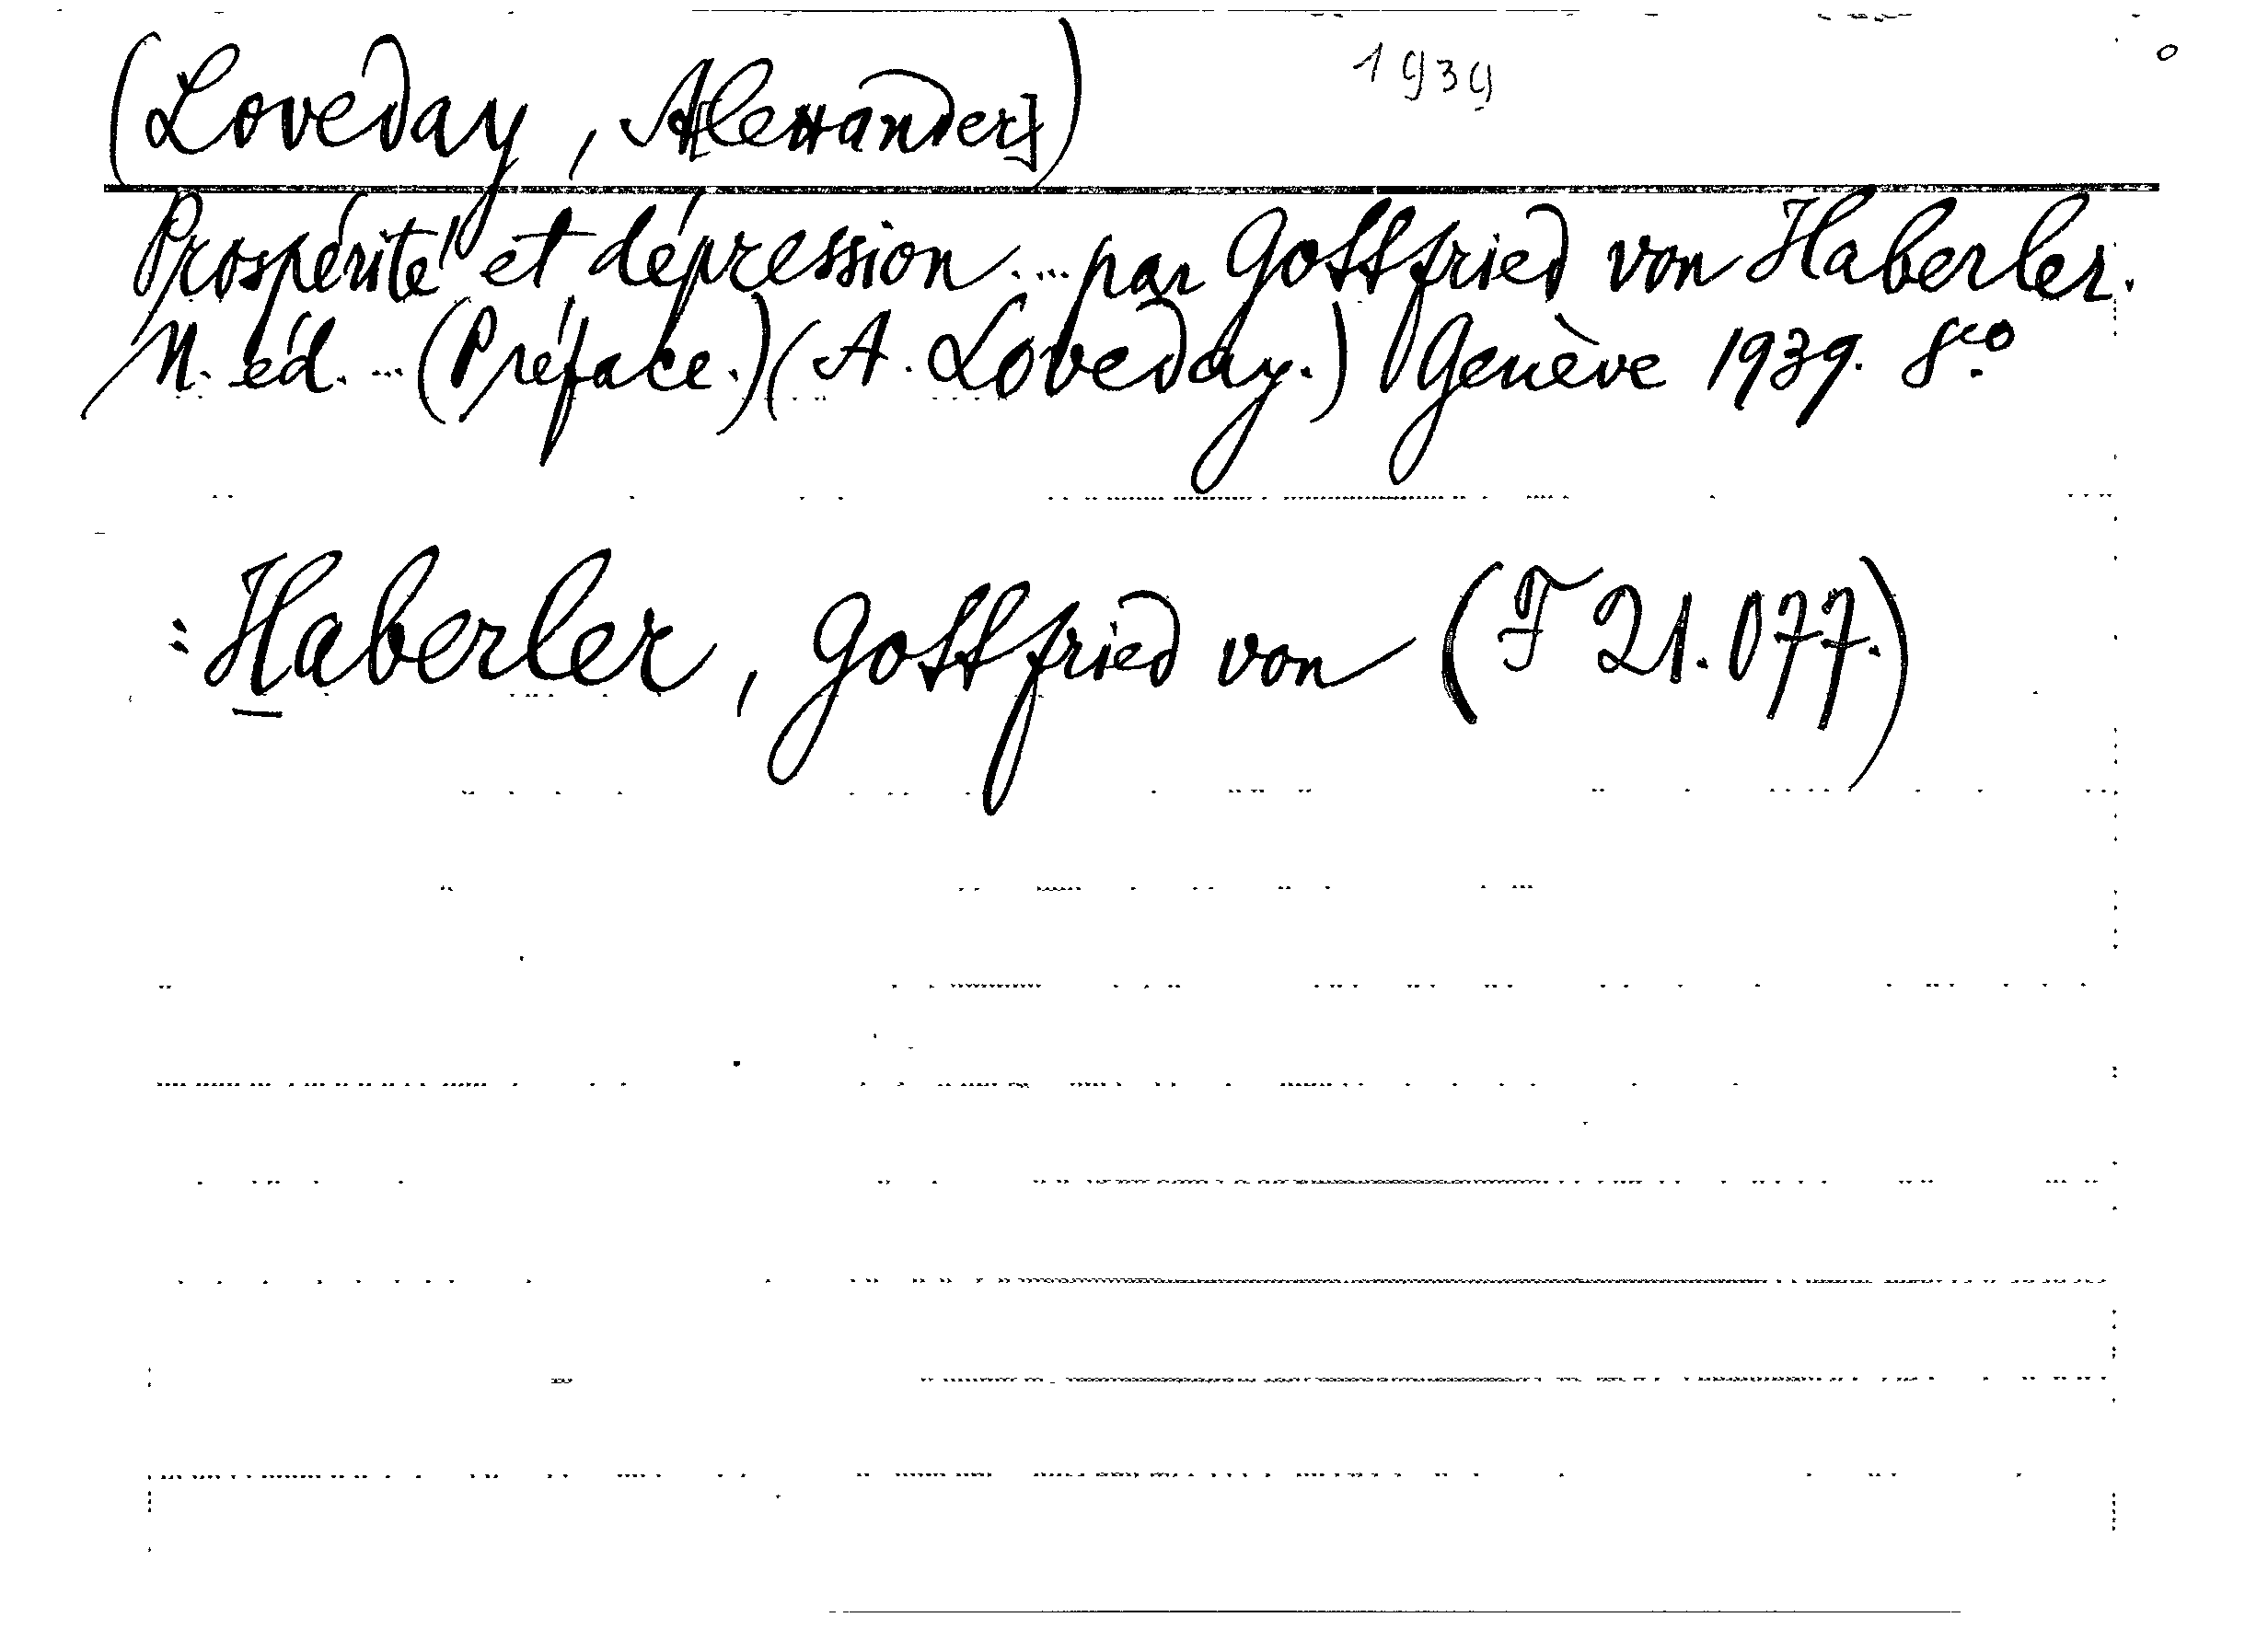 (Loveday, A[lexander]) 1939
Prospérité et dépression ... par Gottfried von Haberler.
N. éd. ... (Préface.) (A. Loveday.) Genève 1939. 8co
= Haberler, Gottfried von (F 21.077.)